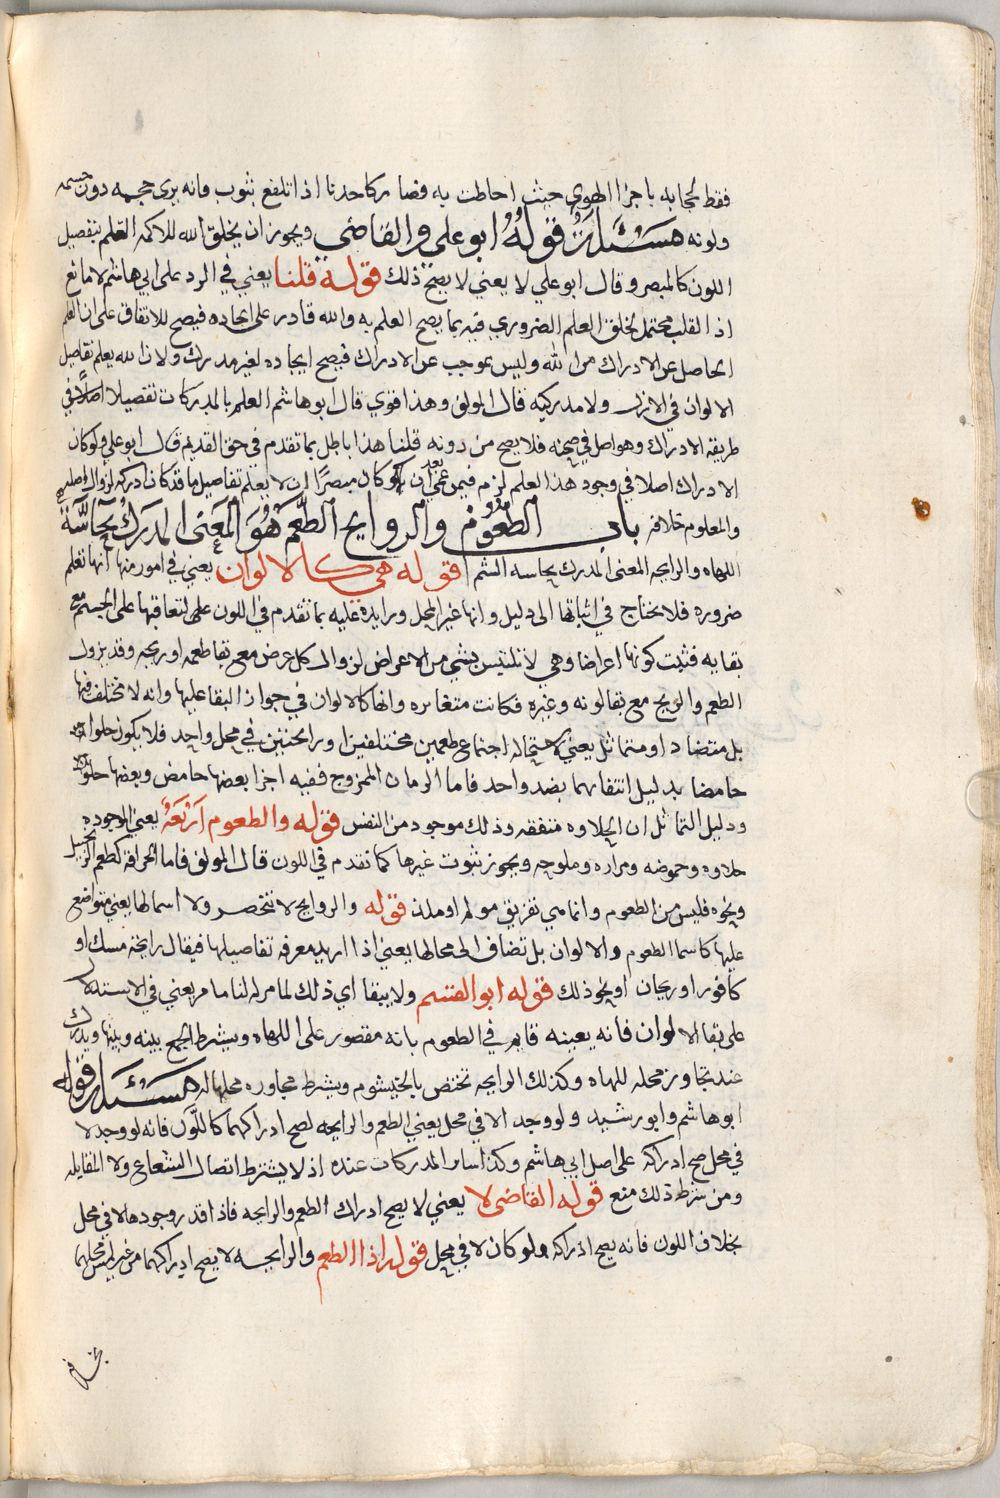 فقط لحجابه باجزا الهوي حيث احاطت به فصار كاحدنا اذا تلفع بثوب فانه يرى حجمه دون جسمه
ولونه مسئلة قوله ابو علي والقاضي ويجوز ان يخلق الله للاكمه العلم بتفصيل
اللون كالمبصر وقال ابو علي لا يعني لا يصح ذلك قوله قلنا يعني في الرد على ابي هاشم لا مانع
اذ القلب محتمل لخلق العلم الضروري فيه بما يصح العلم به والله قادر على ايجاده فيصح للاتفاق على ان العلم
الحاصل عن الادراك من الله وليس بموجب عن الادراك فيصح ايجاده لغير مدرك ولان الله يعلم تفاصيل
الالوان في الازل ولا مدركيه قال المولف وهذا اقوي قال ابو هاشم العلم بالمدركات تفصيلا اصلا في
طريقه الادراك وهو اصل في صحته فلا يصح من دونه قلنا هذا باطل بما تقدم في حق القديم قال ابو علي ولو كان
الادراك اصلا في وجود هذا العلم لزم فيمن عمي بعد ان كان مبصرا ان لا يعلم تفاصيل ما قد كان ادركه لزوال اصله
والمعلوم خلافه باب الطعوم والروايح الطعم هو المعنى المدرك بحاسة
اللهاه والرايحه المعنى المدرك بحاسه الشم قوله هي كالالوان يعني في امور منها انها تعلم
ضروره فلا يحتاج في اثباتها الى دليل وانها غير المحل وزايدة عليه بما تقدم في اللون على لتعاقبها على الجسم مع
بقايه فثبت كونها اعراضا وهي لا تلتبس بشي من الاعراض لزوال كل عرض مع بقا طعمه او ريحه وقد يزول
الطعم والريح مع بقا لونه وغيره فكانت متغايره وانها كالالوان في جواز البقا عليها وانه لا مختلف فيها
بل متضاد او متماثل يعني لاستحاله اجتماع طعمين مختلفين او رايحتين في محل واحد فلا يكون حلوا
حامضا بدليل انتفايهما بضد واحد فاما الرمان الممزوج ففيه اجزا بعضها حامض وبعضها حلو
ودليل التماثل ان الحلاوه متفقه وذلك موجود من النفس قوله والطعوم اربعة يعني الموجوده
حلاوه وحموضه ومراره وملوحه ويجوز ثبوت غيرها كما تقدم في اللون قال المولف فاما الحرافه كطعم الزنجبيل
ونحوه فليس من الطعوم وانما هي تفريق مولم او ملذ قوله والروايح لا تنحصر ولا اسما لها يعني متواضع
عليها كاسما الطعوم والالوان بل تضاف الى محالها يعني اذا اريد معرفه تفاصيلها فيقال رايحة مسك او
كافور او ريحان او نحو ذلك قوله ابو القسم ولا يبقا اي ذلك لما مر لنا ما مر يعني في الاستدلال
على بقا الالوان فانه بعينه قايم في الطعوم بانه مقصور على اللهاه ويشرط الجمع بينه وبينها ويدرك
عند تجاوز محله للهاه وكذلك الرايحه تختص بالخيشوم ويشرط مجاوره محلها له مسئلة قوله
ابو هاشم وابو رشيد ولو وجد الا في محل يعني الطعم والرايحه لصح ادراكهما كاللون فانه لو وجد لا
في محل صح ادراكه على اصل ابي هاشم وكذا ساير المدركات عنده اذ لا يشترط اتصال الشعاع ولا المقابله
ومن شرط ذلك منع قوله القاضي لا يعني لا يصح ادراك الطعم والرايحه فاذا قدر وجودها لا في محل
بخلاف اللون فانه يصح ادراكه ولو كان لا في محل قوله اذ الطعم والرايحه لا يصح ادراكهما من غير لمس محلهما